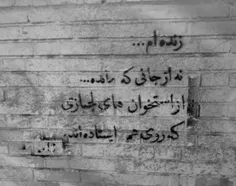 زنده ام...
نه از جانی که مانده...
از استخوان های لجبازی
که روی هم ایستاده اند.